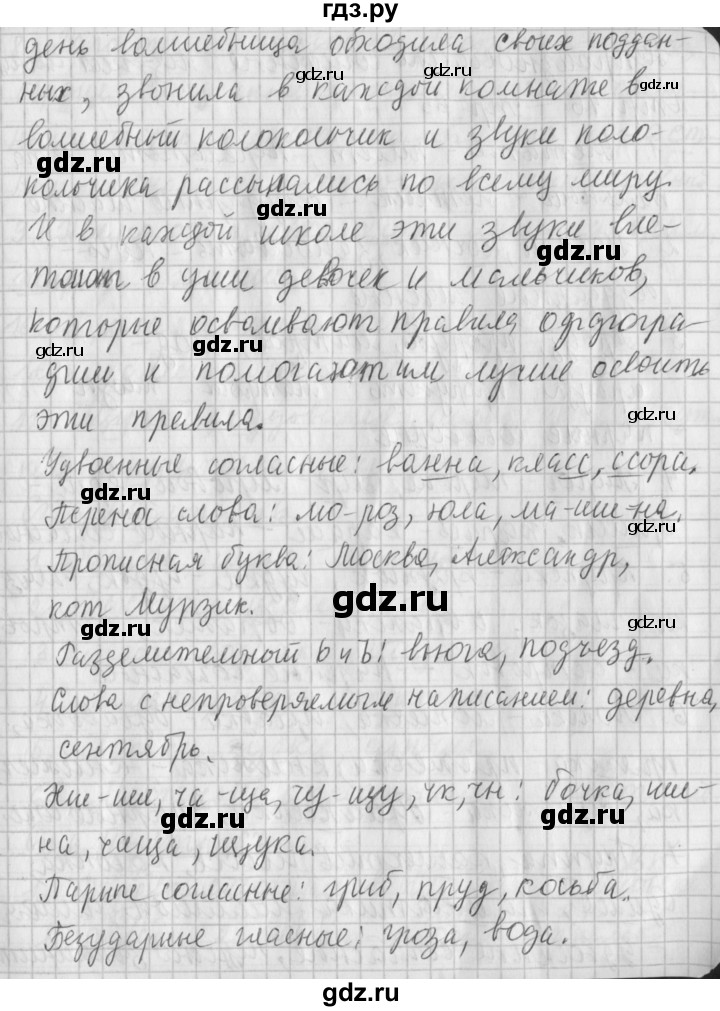 гдз.ру
день волшебница обходила своих поддан-
ных, звонила в каждой комнате в
волшебный колокольчик и звуки коло-
кольчика рассыпались по всему миру.
И в каждой школе эти звуки вле-
тают в уши девочек и мальчиков,
которые осваивают правила орфогра-
фии и помогают им лучше освоить
эти правила.
Удвоенные согласные: ванна, класс, ссора.
Перенос слова: мо-роз, юла, ма-ши-на.
Прописная буква: Москва, Александр,
кот Мурзик.
Разделительный ь и ъ: вьюга, подъезд.
Слова с непроверяемым написанием: деревня,
сентябрь.
Жи-ши, ча-ща, чу-щу, чк, чн: бочка, ши-
на, чаща, щука.
Парные согласные: гриб, пруд, косьба.
Безударные гласные: гроза, вода.
gdz.ru
gdz.ru
gdz.ru
gdz.ru
gdz.ru
gdz.ru
gdz.ru
gdz.ru
gdz.ru
gdz.ru
gdz.ru
gdz.ru
gdz.ru
gdz.ru
gdz.ru
gdz.ru
gdz.ru
gdz.ru
gdz.ru
gdz.ru